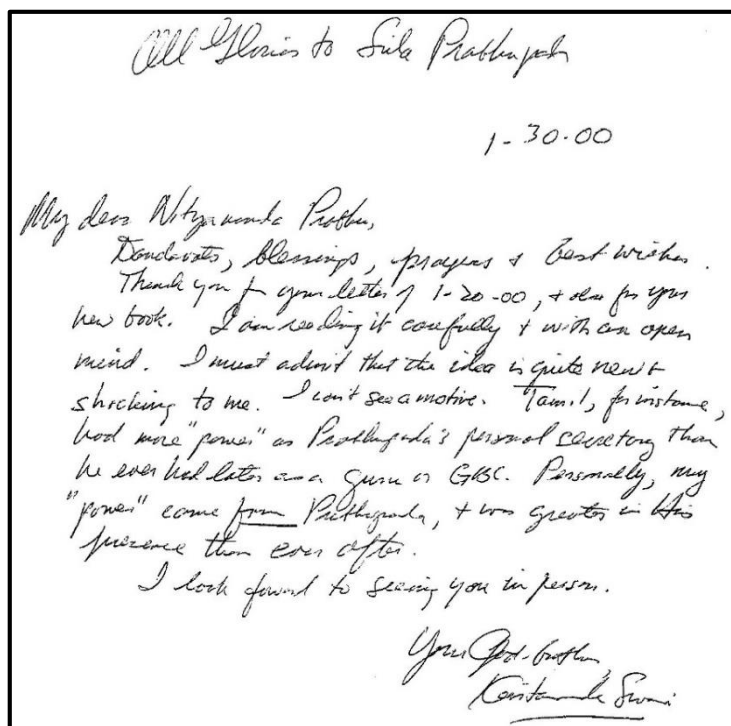 All Glories to Srila Prabhupada
1-30-00
My dear Nityananda Prabhu,
Dandavats, blessings, prayers + best wishes.
Thank you for your letter of 1-20-00, + also for your
new book. I am reading it carefully + with an open
mind. I must admit that the idea is quite new +
shocking to me. I can't see a motive. Tamil, for instance,
had more "power" as Prabhupada's personal secretary than
he ever had later as a guru or GBC. Personally, my
"power" came from Prabhupada, + was greater in His
presence than ever after.
I look forward to seeing you in person.
Your God-brother,
Kirtanananda Swami